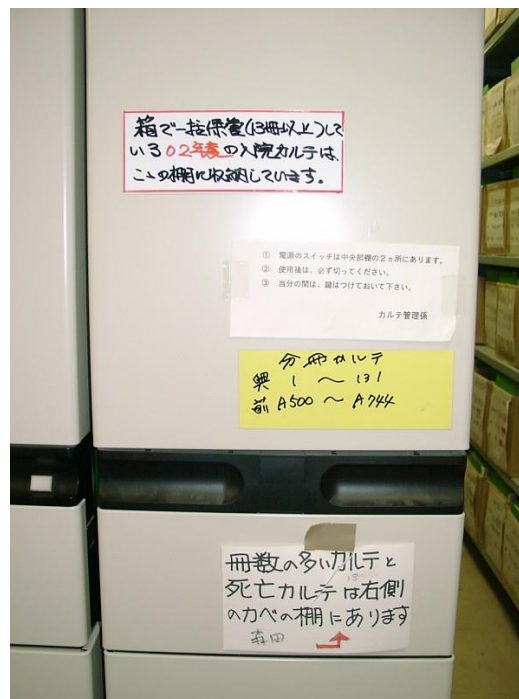 箱で一括保管(13冊以上)して
いる02年度の入院カルテは、
この棚に収納しています。
① 電源のスイッチは中央部棚の2ヵ所にあります。
② 使用後は、必ず切ってください。
③ 当分の間は、鍵はつけておいて下さい。
カルテ管理係
分冊カルテ
興 1 ～ 131
前 A500 ～ A744
冊数の多いカルテと
死亡カルテは右側
のカベの棚にあります
森田